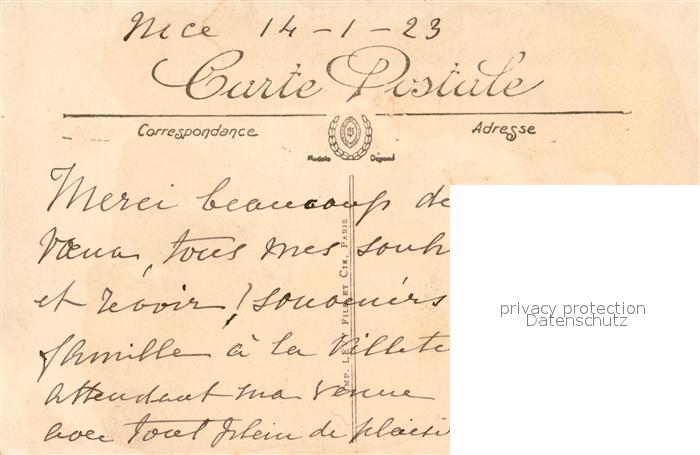 Nice 14-1-23
Carte Postale
Correspondance
Adresse
Modèle Déposé
Merci beaucoup de
Vœux, tous mes souh
et revoir! souvenirs
famille à la Villete
attendant ma venue
avec tout plein de plaisi
IMP. LEVY FILS ET CIE, PARIS
privacy protection
Datenschutz